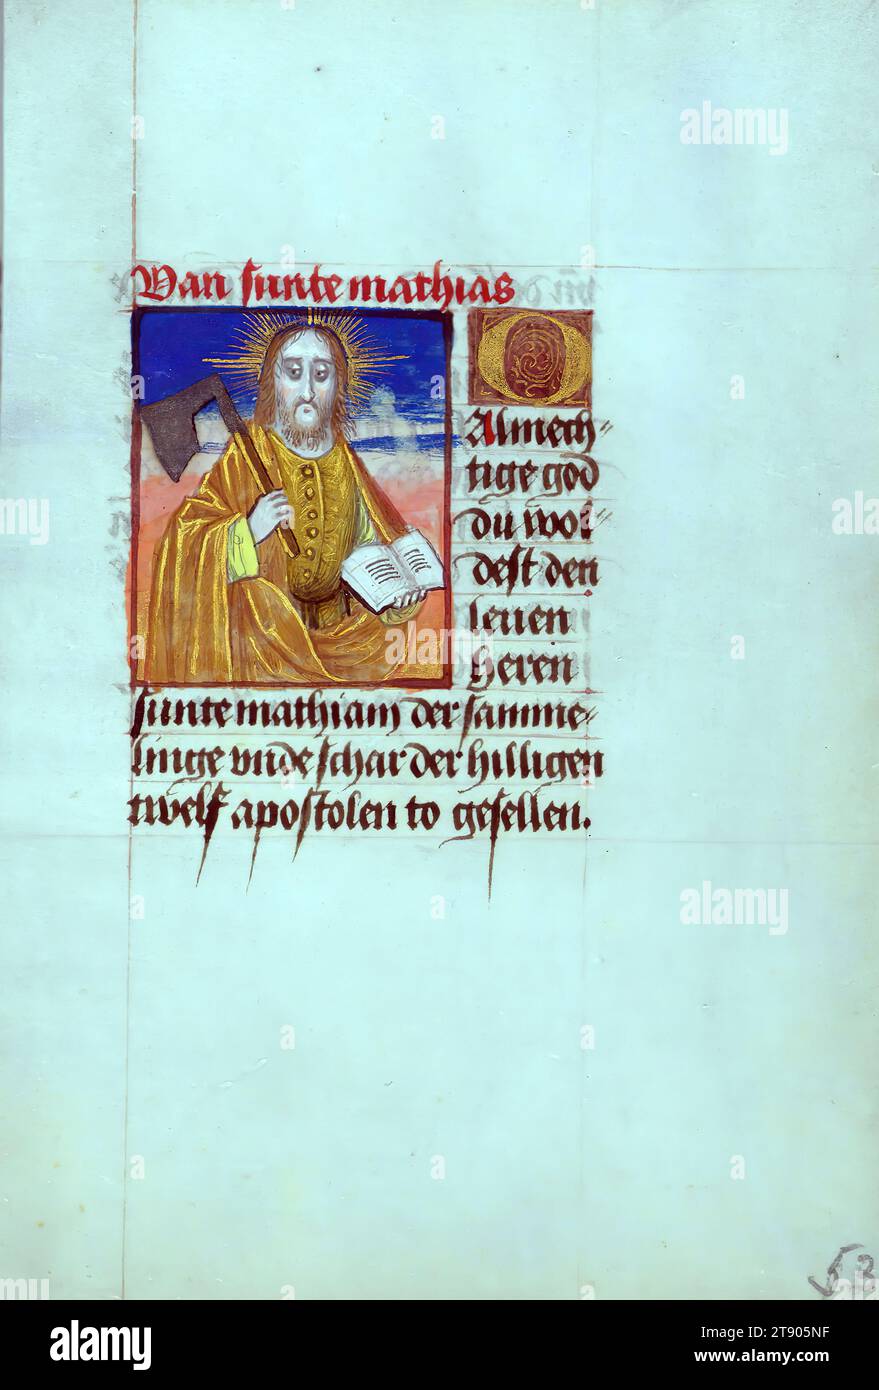 Van sunte mathias
O
Almech-
tige god
du wol-
dest den
leuen
heren
sunte mathiam der samme-
linge vnde schar der hilligen
twelf apostolen to gesellen.
53
alamy
alamy
Image ID: 2T905NF
www.alamy.com